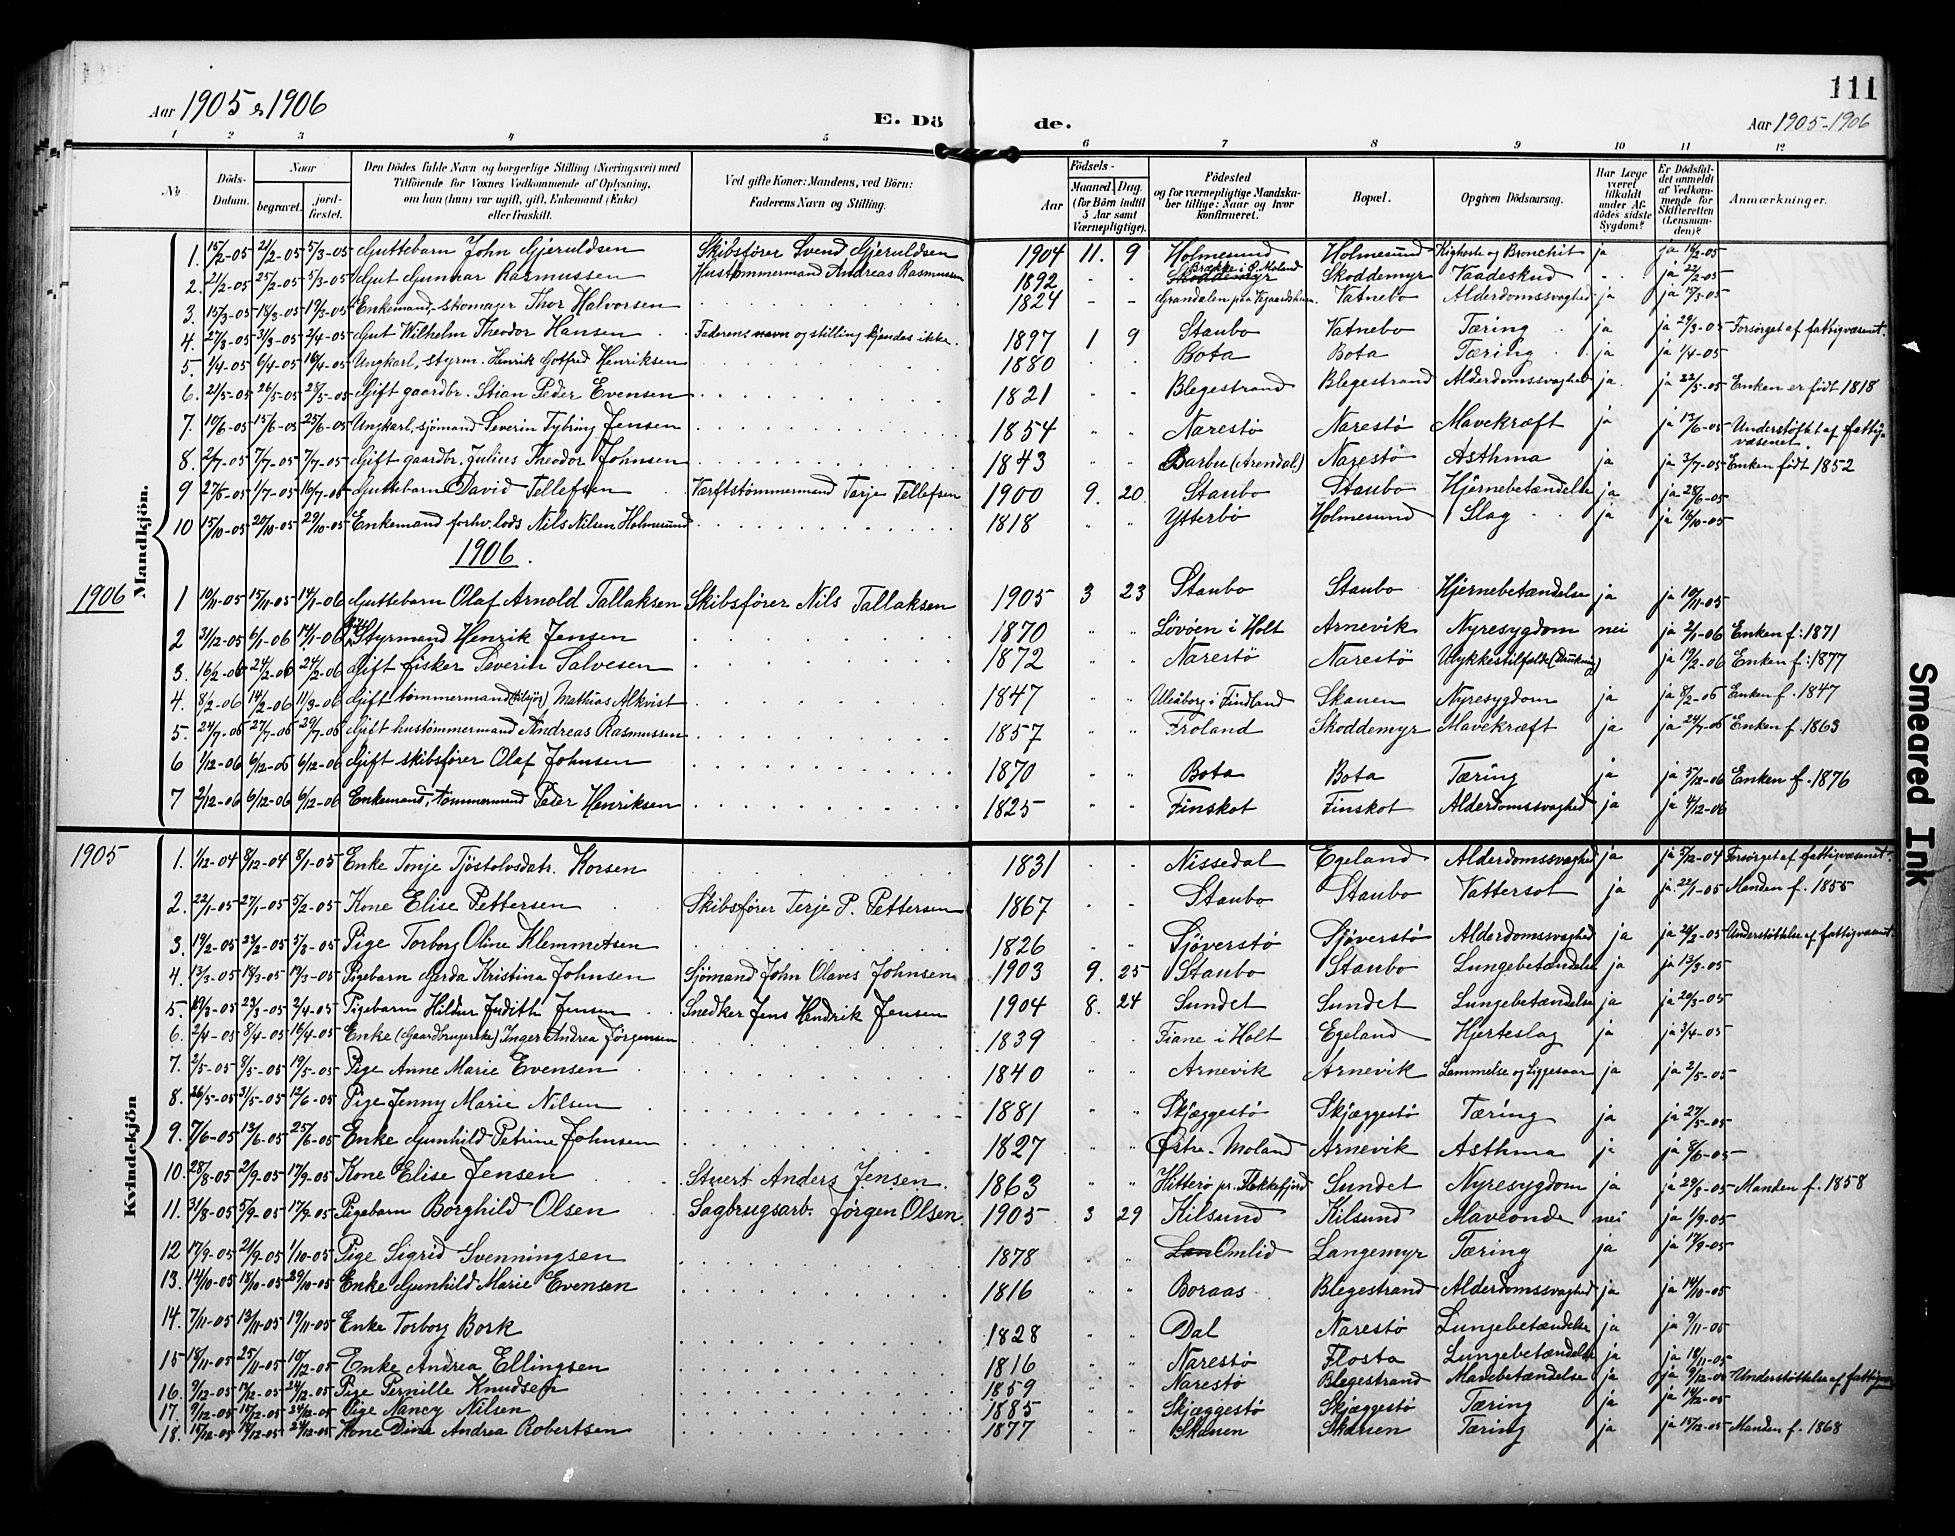 111
Aar 1905 & 1906 E. Dö de. Aar 1905-1906
1 2 3 4 5 6 7 8 9 10 11 12
No. Döds-Datum. Naar begravet. jord-fæstet. Den Dödes fulde Navn og borgerlige Stilling (Næringsvei) med Tilföiende for Voxnes Vedkommende af Oplysning, om han (hun) var ugift, gift, Enkemand (Enke) eller fraskilt. Ved gifte Koner: Mandens, ved Börn: Faderens Navn og Stilling. Födsels- Aar Maaned. Dag. (for Börn indtil 5 Aar samt Værnepligtige). Födested og for værnepligtige Mandskaber tillige: Naar og hvor konfirmeret. Bopæl. Opgiven Dödsaarsag. Har Læge været tilkaldt under Afdödes sidste Sygdom? Er Dödsfaldet anmeldt af Vedkommende for Skifteretten (Lensmanden)? Anmærkninger.
Mandkjön.
1. 15/2-05 21/2-05 5/3-05 Guttebarn John Gjeruldsen Skibsfører Svend Gjeruldsen 1904 11. 9 Holmesund Holmesund Kighoste og Bronchit ja ja 16/2-05
2. 21/2-05 25/2-05 5/3-05 Gut Gunnar Rasmussen Hustømmermand Andreas Rasmussen 1892 Brække i Ø. Moland Skoddemyr Skoddemyr Vaadeskud ja 22/2-05
3. 15/3-05 18/3-05 19/3-05 Enkemand, skomager Thor Halvorsen 1824 Grandalen Vatnebo Alderdomssvaghed ja ja 17/3-05
4. 27/3-05 31/3-05 2/4-05 Gut Wilhelm Theodor Hansen Faderens navn og stilling kjendes ikke. 1897 1 9 Staubo Vatnebo Tæring ja ja 29/3-05 Forsørget af fattigvæsenet.
5. 1/4-05 6/4-05 16/4-05 Ungkarl, styrm. Henrik Gotfred Henriksen 1880 Bota Bota Tæring ja ja 1/4-05
6. 21/5-05 26/5-05 28/5-05 Gift gaardbr. Stian Peder Evensen 1821 Blegestrand Blegestrand Alderdomssvaghed ja. ja 22/5-05 Enken er født 1818
7. 10/6-05 15/6-05 25/6-05 Ungkarl, sjømand Severin Tybring Jensen 1854 Narestø Narestø Mavekræft ja ja 13/6-05 Understøttet af fattigvæsenet.
8. 2/7-05 7/7-05 7/7-05 Gift gaardbr. Julius Theodor Johnsen 1843 Barbu (Arendal) Narestø Asthma ja ja 3/7-05 Enken født 1852
9 27/6-05 1/7-05 16/7-05 Guttebarn David Tellefsen Værftstømmermand Tarje Tellefsen 1900 9. 20 Staubo Staubo Hjernebetændelse ja ja 28/6-05
10 15/10-05 20/10-05 29/10-05 Enkemand forhv. lods Nils Nilsen Holmesund 1818 Ytterbø Holmesund Slag ja ja 16/10-05
1906.
1906
1 10/11-05 15/11-05 14/1-06 Guttebarn Olaf Arnold Tallaksen Skibsfører Nils Tallaksen 1905 3 23 Staubo Staubo Hjernebetændelse ja ja 10/11-05
2 31/12-05 6/1-06 14/1-06 Gift Styrmand Henrik Jensen 1870 Løvøen i Holt Arnevik Nyresygdom nei ja 2/1-06 Enken f: 1871
3. 16/2-06 24/2-06 24/2-06 Gift fisker Severin Salvesen 1872 Narestø Narestø Ulykkestilfælde (Drukning) ja 19/2-06 Enken f: 1877
4. 8/2-06 14/2-06 11/3-06 Gift tømmermand Mathias Alkvist 1847 Uleåborg i Findland Skauen Nyresygdom ja ja 8/2-06 Enken f. 1847
5. 24/7-06 27/7-06 29/7-06 Gift hustømmermand Andreas Rasmussen 1857 Froland Skoddemyr Mavekræft ja ja 24/7-06 Enken f. 1863
6 1/12-06 6/12-06 6/12-06 Gift skibsfører Olaf Johnsen 1870 Bota Bota Tæring ja ja 5/12-06 Enken f. 1876
7 2/12-06 6/12-06 6/12-06 Enkemand, tømmermand Peder Henriksen 1825 Finskot Finskot Alderdomssvaghed ja ja 4/12-06
1905
Kvindekjön
1. 1/12-04 8/12-04 8/1-05 Enke Tonje Tjöstolvsdatr. Korsen 1831 Nissedal Egeland Alderdomssvaghed ja ja 5/12-04 Forsørget af fattigvæsenet.
2. 22/1-05 27/1-05 5/2-05 Kone Elise Pettersen Skibsfører Terje P. Pettersen 1867 Staubo Staubo Vattersot ja ja 22/1-05 Manden f. 1855
3. 19/2-05 23/2-05 5/3-05 Pige Torborg Oline Klemmetsen 1826 Sjöverstø Sjöverstø Alderdomssvaghed ja ja 20/2-05 Understöttelse af fattigvæsenet.
4. 13/3-05 18/3-05 19/3-05 Pigebarn Gerda Kristina Johnsen Sjömand John Olaves Johnsen 1903 9. 25 Staubo Staubo Lungebetændelse ja ja 13/3-05
5. 19/3-05 23/3-05 2/4-05 Pigebarn Hildur Judith Jensen Snedker Jens Hendrik Jensen 1904 8. 24 Sundet Sundet Lungebetændelse ja ja 20/3-05
6. 2/4-05 8/4-05 16/4-05 Enke (Gaardbrugerske) Inger Andrea Jørgensen 1839 Fiane i Holt Egeland Hjerteslag ja ja 3/4-05
7. 2/5-05 8/5-05 19/5-05 Pige Anne Marie Evensen 1840 Arnevik Arnevik Lammelse og Liggesaar ja ja 2/5-05
8. 26/5-05 31/5-05 12/6-05 Pige Jenny Marie Nilsen 1881 Skjæggestø Skjæggestø Tæring ja ja 27/5-05
9. 7/6-05 13/6-05 25/6-05 Enke Gunhild Petrine Johnsen 1827 Østre-Moland Arnevik Asthma ja ja 8/6-05
10. 28/8-05 2/9-05 17/9-05 Kone Elise Jensen Stuert Anders Jensen. 1863 Hitterø pr. Flekkefjord Sundet Nyresygdom ja ja 29/8-05 Manden f. 1858
11. 31/8-05 5/9-05 17/9-05 Pigebarn Borghild Olsen Sagbrugsarb. Jørgen Olsen 1905 3 29 Kilsund Kilsund Maveonde nei ja 1/9-05
12 17/9-05 21/9-05 1/10-05 Pige Sigrid Svenningsen 1878 Lan Omlid Langemyr Tæring ja ja 17/9-05
13. 14/10-05 18/10-05 29/10-05 Enke Gunhild Marie Evensen 1816 Boraas Blegestrand Alderdomssvaghed ja ja 14/10-05
14. 7/11-05 13/11-05 19/11-05 Enke Torborg Bork 1828 Dal Narestø Lungebetændelse ja ja 9/11-05
15 18/11-05 25/11-05 10/12-05 Enke Andrea Ellingsen 1816 Narestø Flosta Lungebetændelse ja ja 18/11-05
16. 9/12-05 17/12-05 24/12-05 Pige Pernille Knudsen 1859 Narestø Blegestrand Mavebetændelse ja ja 9/12-05 Understöttelse af fattigv
17. 9/12-05 17/12-05 24/12-05 Pige Nancy Nilsen 1885 Skjæggestø Skjæggestø Tæring ja ja 14/12-05
18. 17/12-05 19/12-05 24/12-05 Kone Dina Andrea Robertsen 1877 Skauen Skauen Tæring ja ja 17/12-05 Manden f. 1868
Smeared Ink